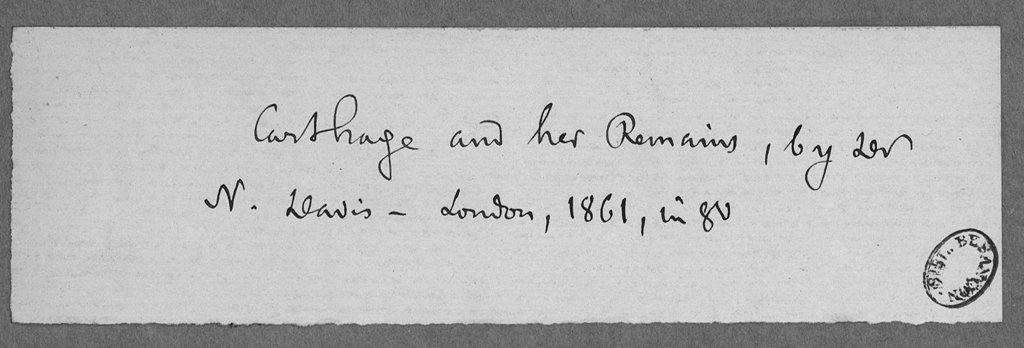 Carthage and her Remains, by Dr
N. Davis – London, 1861, in 8o
BIBL. BESANÇON